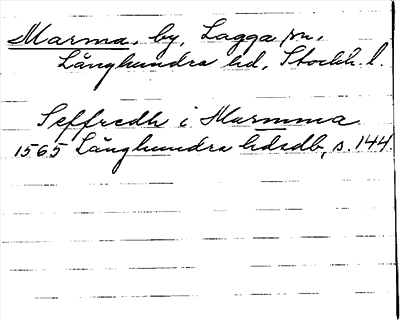 Marma, by, Lagga sn,
Långhundra hd, Stockh. l.
Seffredh i Marmma
1565 Långhundra hdsdb, s. 144.